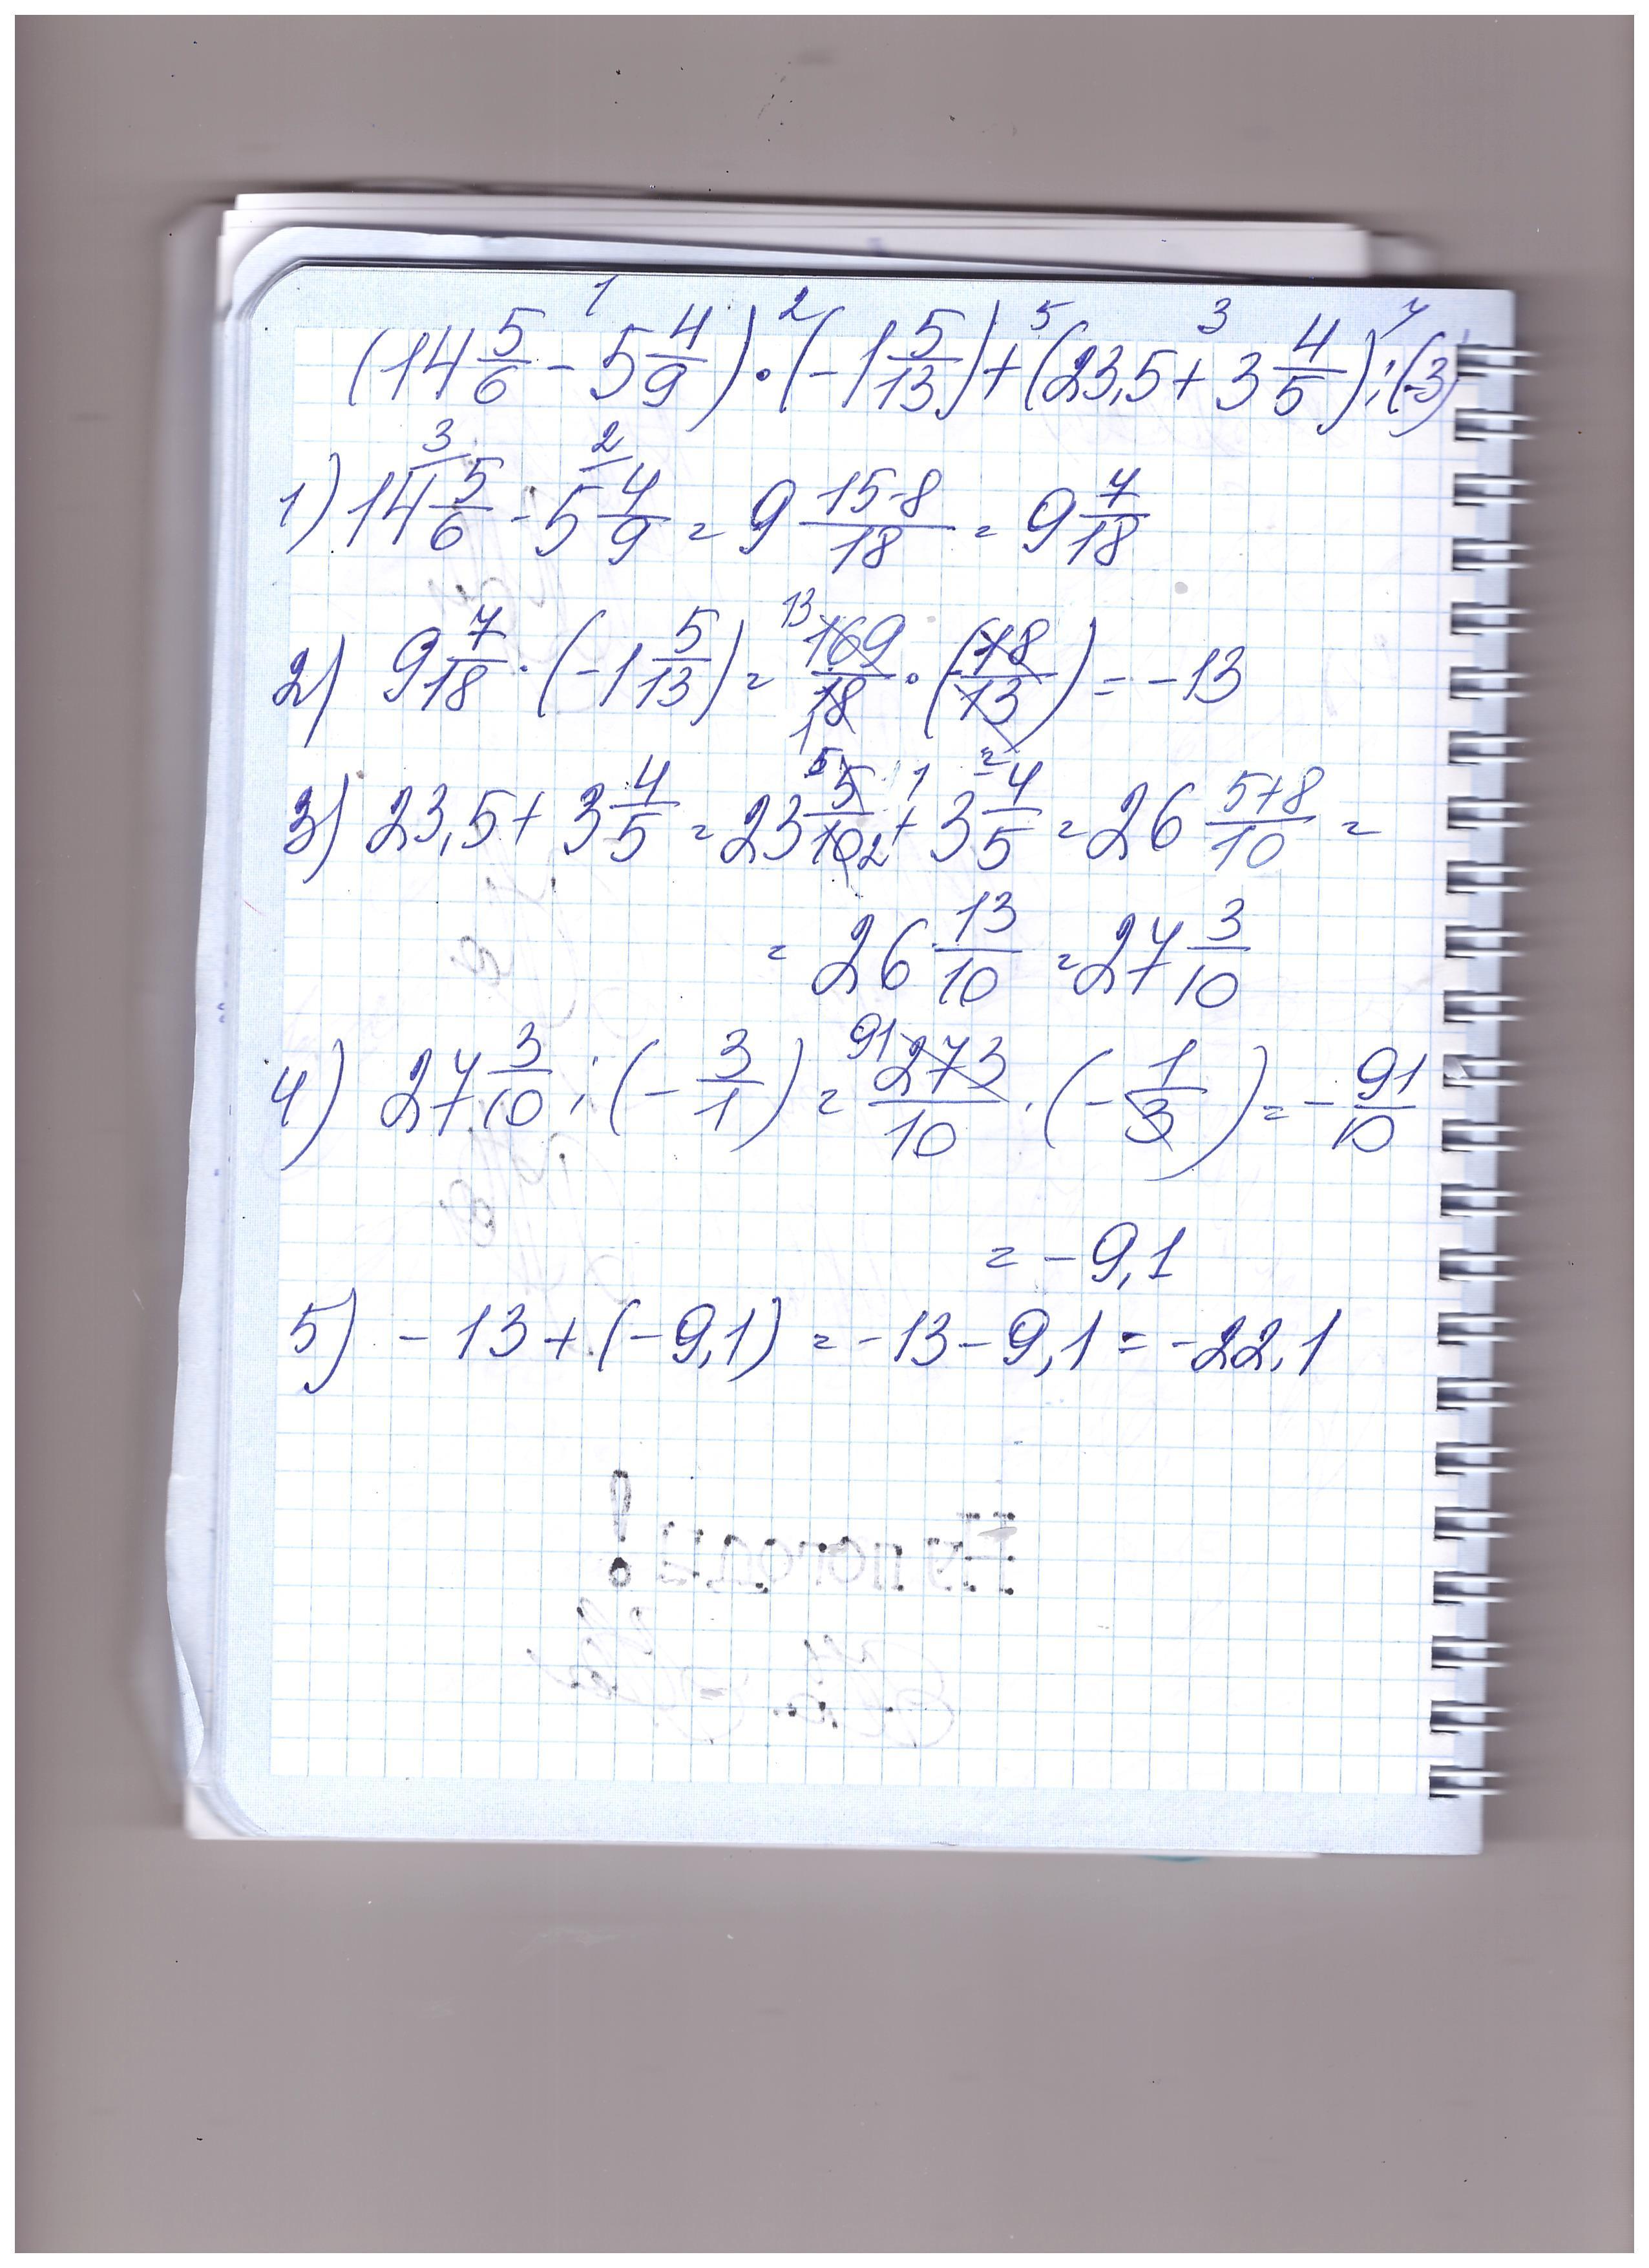 1 2 5 3 4
(14 5/6 - 5 4/9) · (-1 5/13) + (23,5 + 3 4/5) : (-3)
3 2
1) 14 5/6 - 5 4/9 = 9 15-8/18 = 9 7/18
2) 9 7/18 · (-1 5/13) = 13 169/18 1 · (-18/13) = -13
3) 23,5 + 3 4/5 = 23 5/10 2 1 + 3 4/5 2 = 26 5+8/10 =
= 26 13/10 = 27 3/10
4) 27 3/10 : (- 3/1) = 91 273/10 · (- 1/3) = - 91/10
= -9,1
5) - 13 + (-9,1) = -13 - 9,1 = -22,1